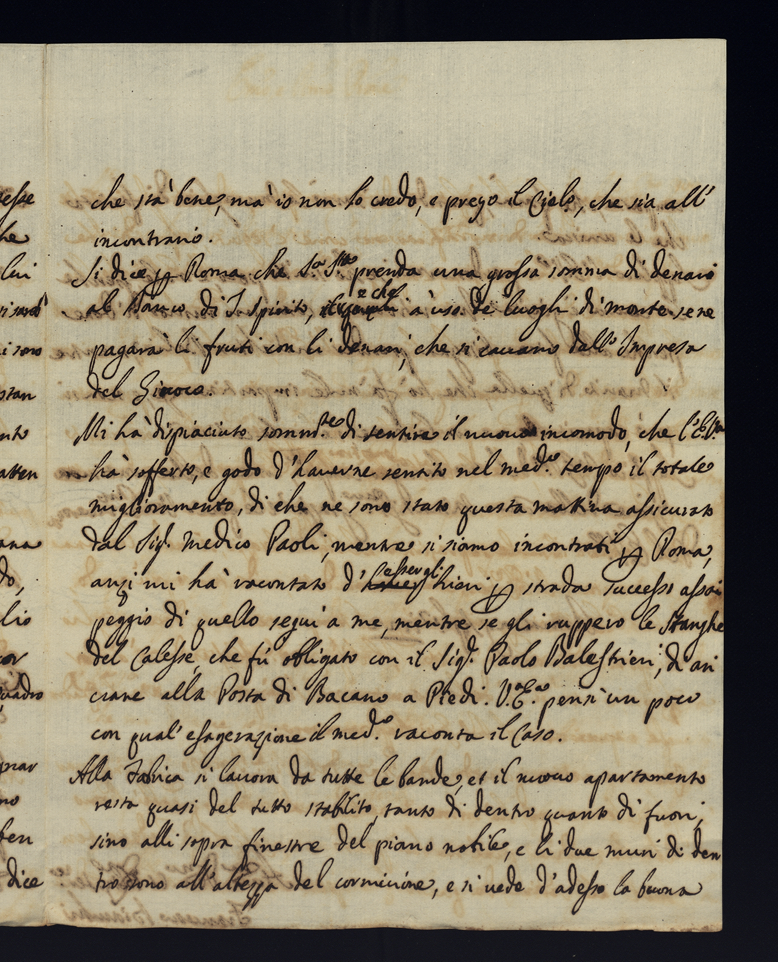 che stà bene, mà io non lo credo, e prego il Cielo, che sia all'
incontrario.
Si dice p Roma che S.a S.tà prenda una grossa somma di denaro
al Banco di S. Spirito, e che à uso de luoghi di monte se ne
pagarà li fruti con li denari, che si cavano dall'Impresa
del Giuoco.
Mi hà dispiaciuto somm.te di sentire il nuovo incomodo, che l'E.V.
hà sofferto, e godo d'haverne sentito nel med.o tempo il totale
miglioramento, di che ne sono stato questa mattina assicurato
dal Sig.r Medico Paoli, mentre si siamo incontrati p Roma,
anzi mi hà racontato d'essergli hieri p strada successo assai
peggio di quello seguì a me, mentre se gli ruppero le stanghe
del Calesse, che fù obligato con il Sig.r Paolo Balestrieri, di ari
vare alla Posta di Bacano a Piedi. V.a E.a pensi un poco
con qual'esagerazione il med.o raconta il Caso.
Alla Fabrica si lavora da tutte le bande, et il nuovo apartamento
resta quasi del tutto stablito, tanto di dentro quanto di fuori,
sino alli sopra finestre del piano nobile, e li due muri di den
tro sono all'altezza del cornicione, e si vede d'adesso la buona
esse
he
lui
i sono
stan
nto
atten
ana
do,
lio
cor
uadro
gnar
no
ben
dice